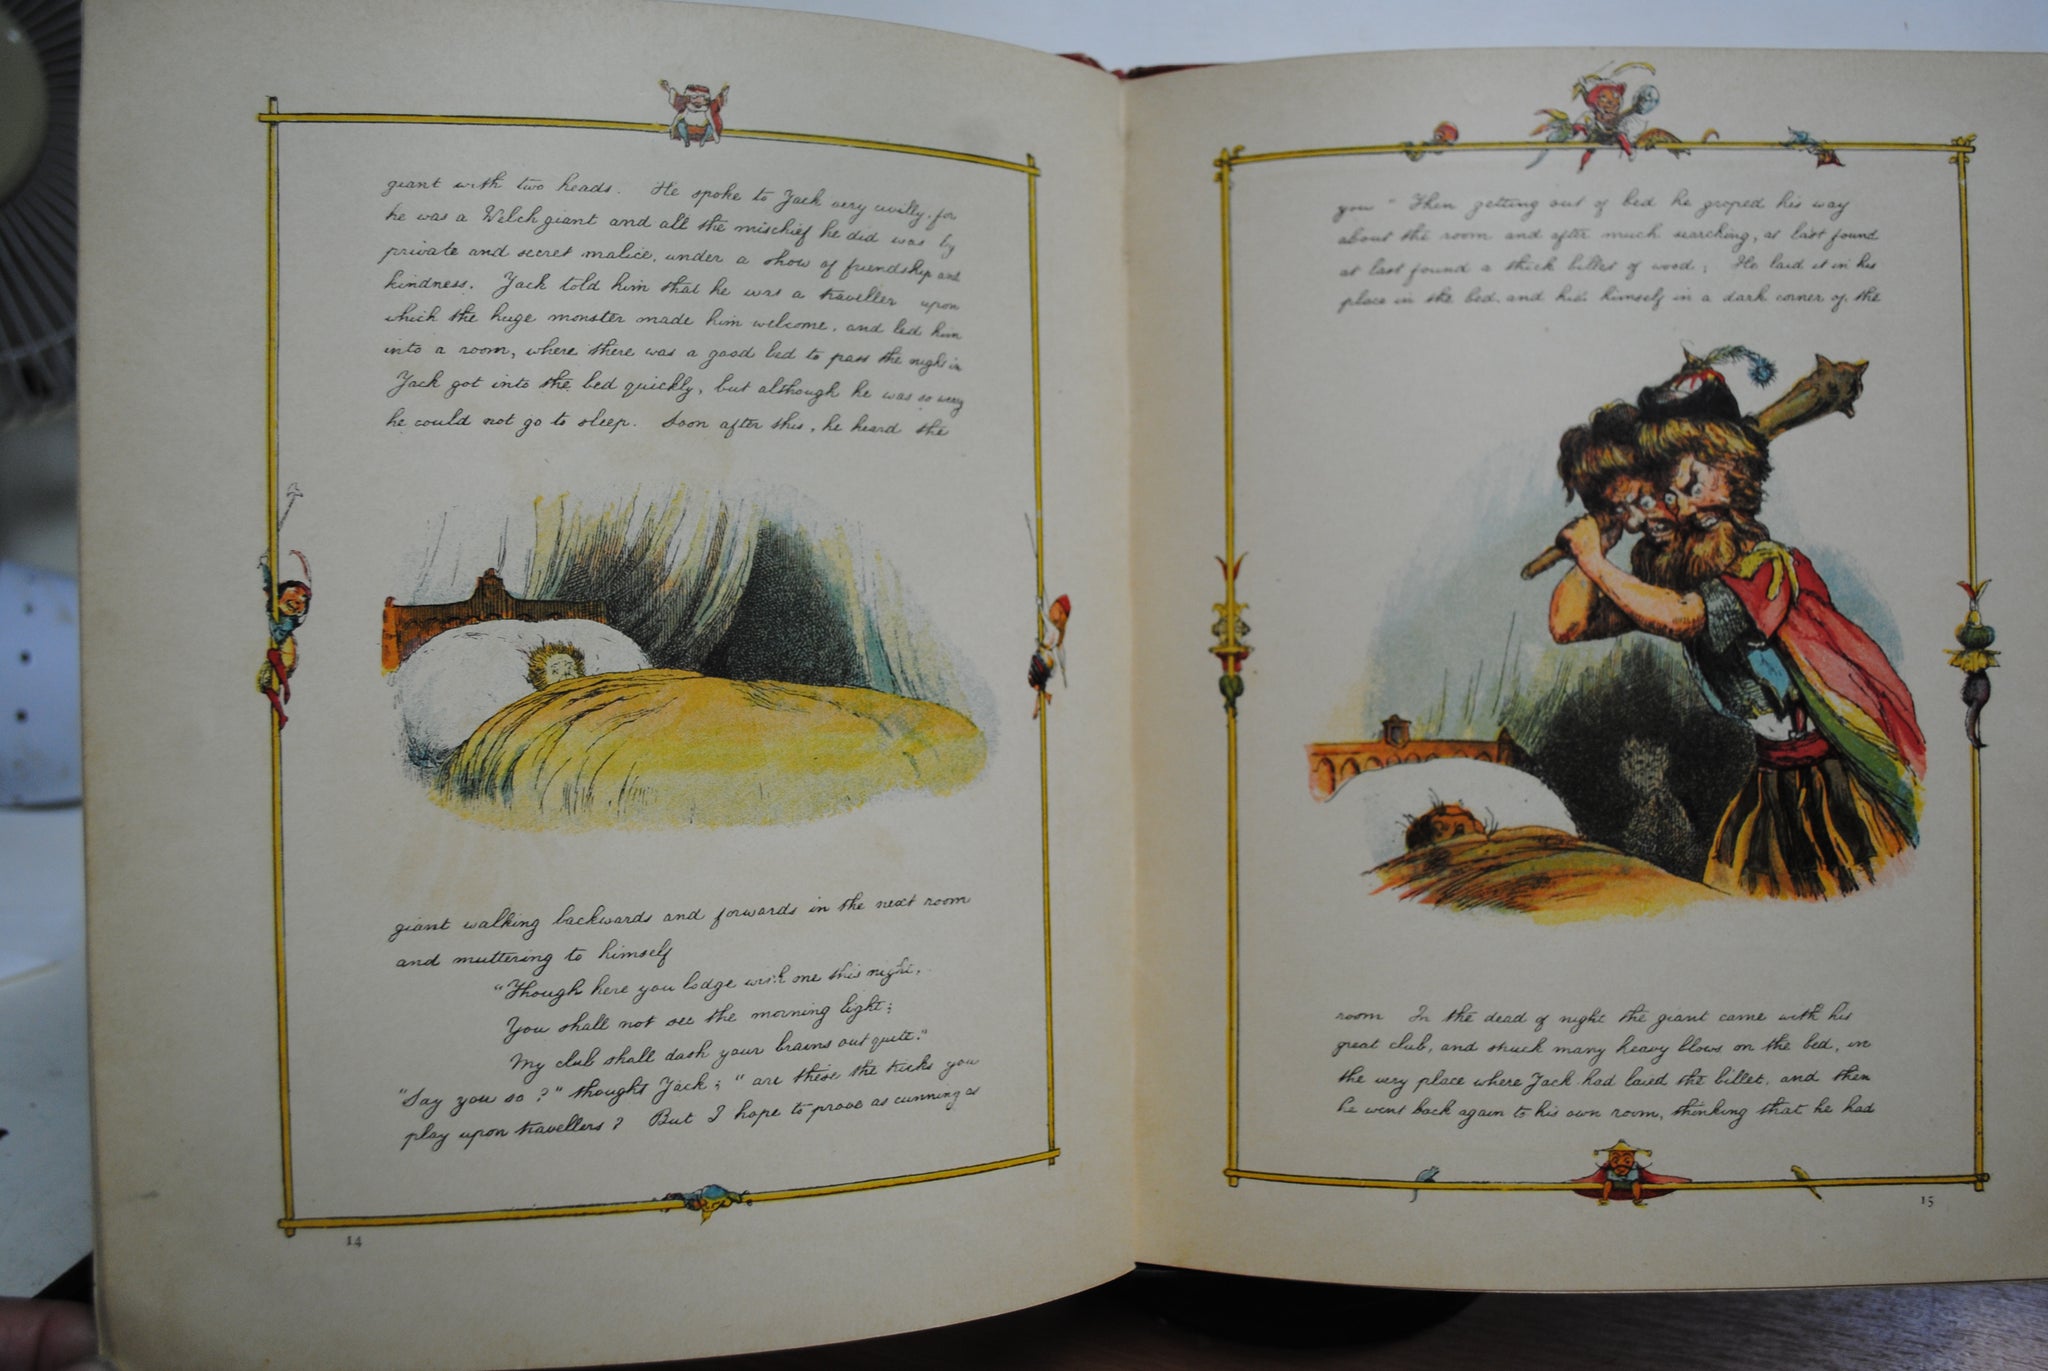 giant with two heads. He spoke to Jack very civilly, for
he was a Welch giant and all the mischief he did was by
private and secret malice, under a show of friendship and
kindness. Jack told him that he was a traveller upon
which the huge monster made him welcome, and led him
into a room, where there was a good bed to pass the night in
Jack got into the bed quickly, but although he was so very
he could not go to sleep. Soon after this, he heard the
giant walking backwards and forwards in the next room
and muttering to himself
"Though here you lodge with me this night,
You shall not see the morning light;
My club shall dash your brains out quite."
"Say you so?" thought Jack; "are these the tricks you
play upon travellers? But I hope to prove as cunning as
14
you" Then getting out of bed he groped his way
about the room and after much searching, at last found
at last found a thick billet of wood; He laid it in his
place in the bed and hid himself in a dark corner of the
room In the dead of night the giant came with his
great club, and struck many heavy blows on the bed, in
the very place where Jack had laied the billet, and then
he went back again to his own room, thinking that he had
15